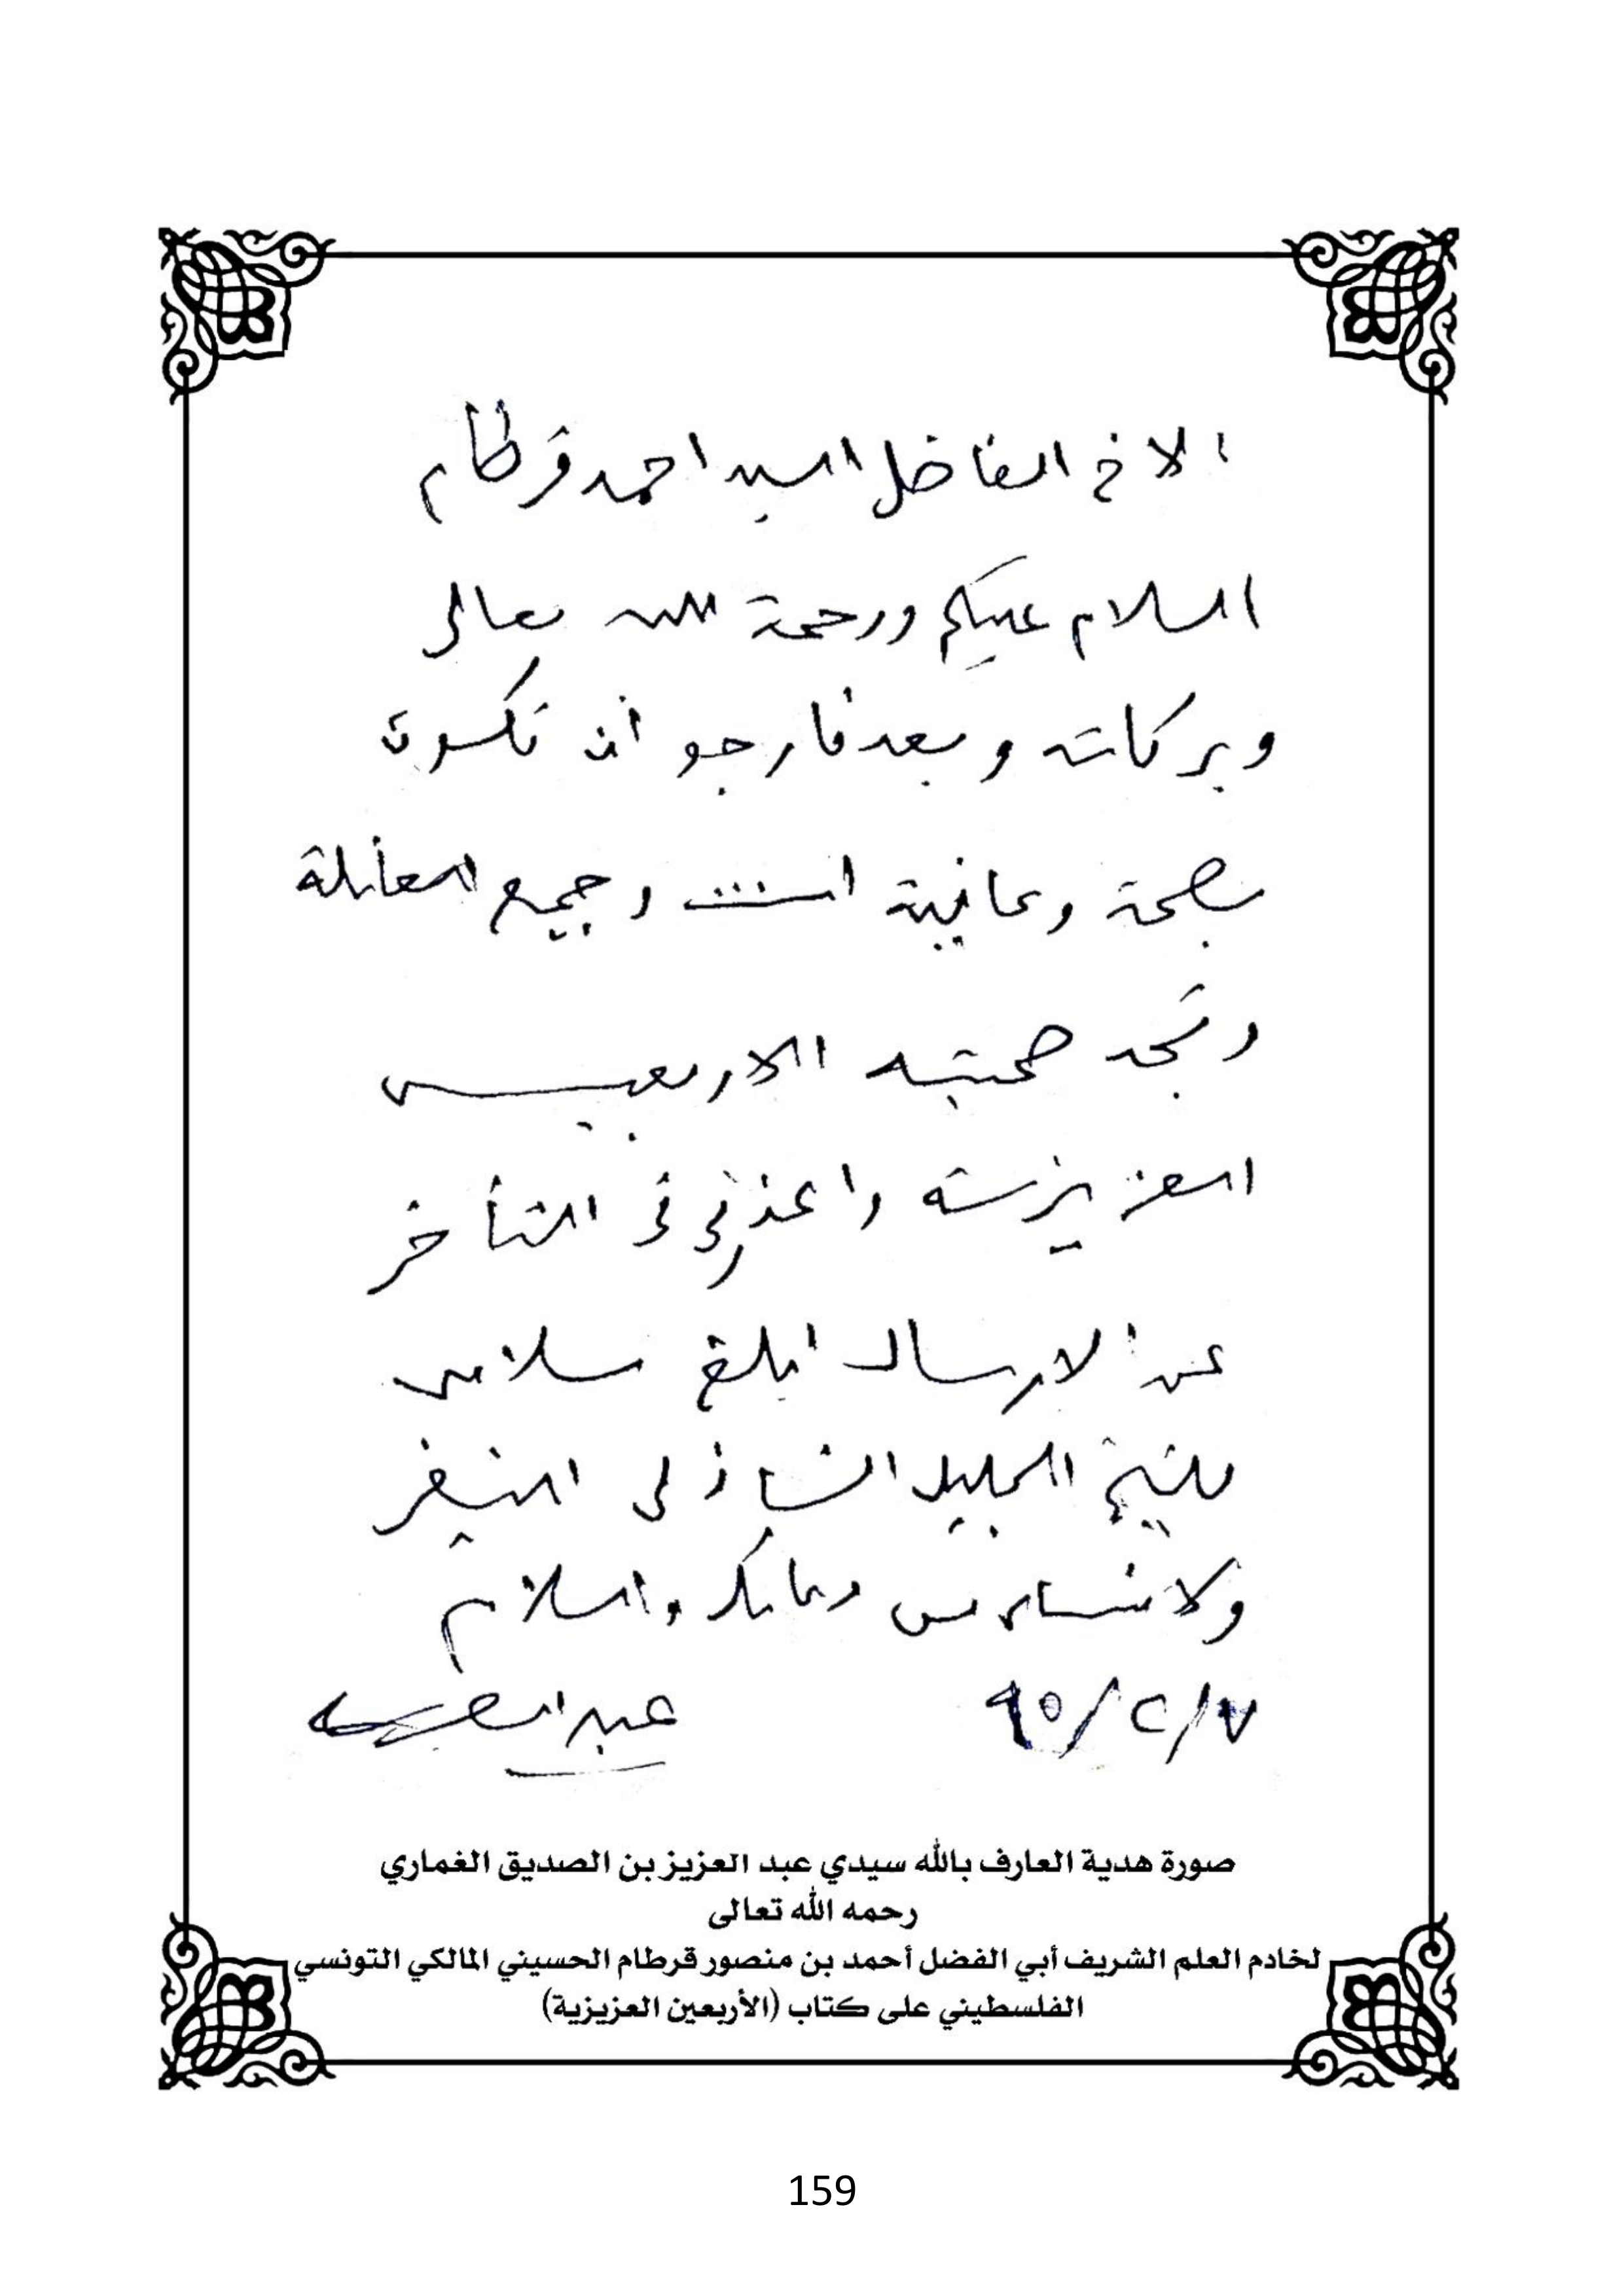 الاخ الفاضل السيد احمد قرطام
السلام عليكم ورحمة الله تعالى
وبركاته وبعد فارجو أن تكون
بصحة وعافية انت وجميع العائلة
وتجد صحبته الاربعين
العزيزية واعذرني في التأخر
عن الارسال ابلغ سلامى
للشيخ الجليل الشاذلى النيفر
ولا تنسانا من دعائك والسلام
٩٥/٢/٧ عبد العزيز
صورة هدية العارف بالله سيدي عبد العزيز بن الصديق الغماري
رحمه الله تعالى
لخادم العلم الشريف أبي الفضل أحمد بن منصور قرطام الحسيني المالكي التونسي
الفلسطيني على كتاب (الأربعين العزيزية)
159